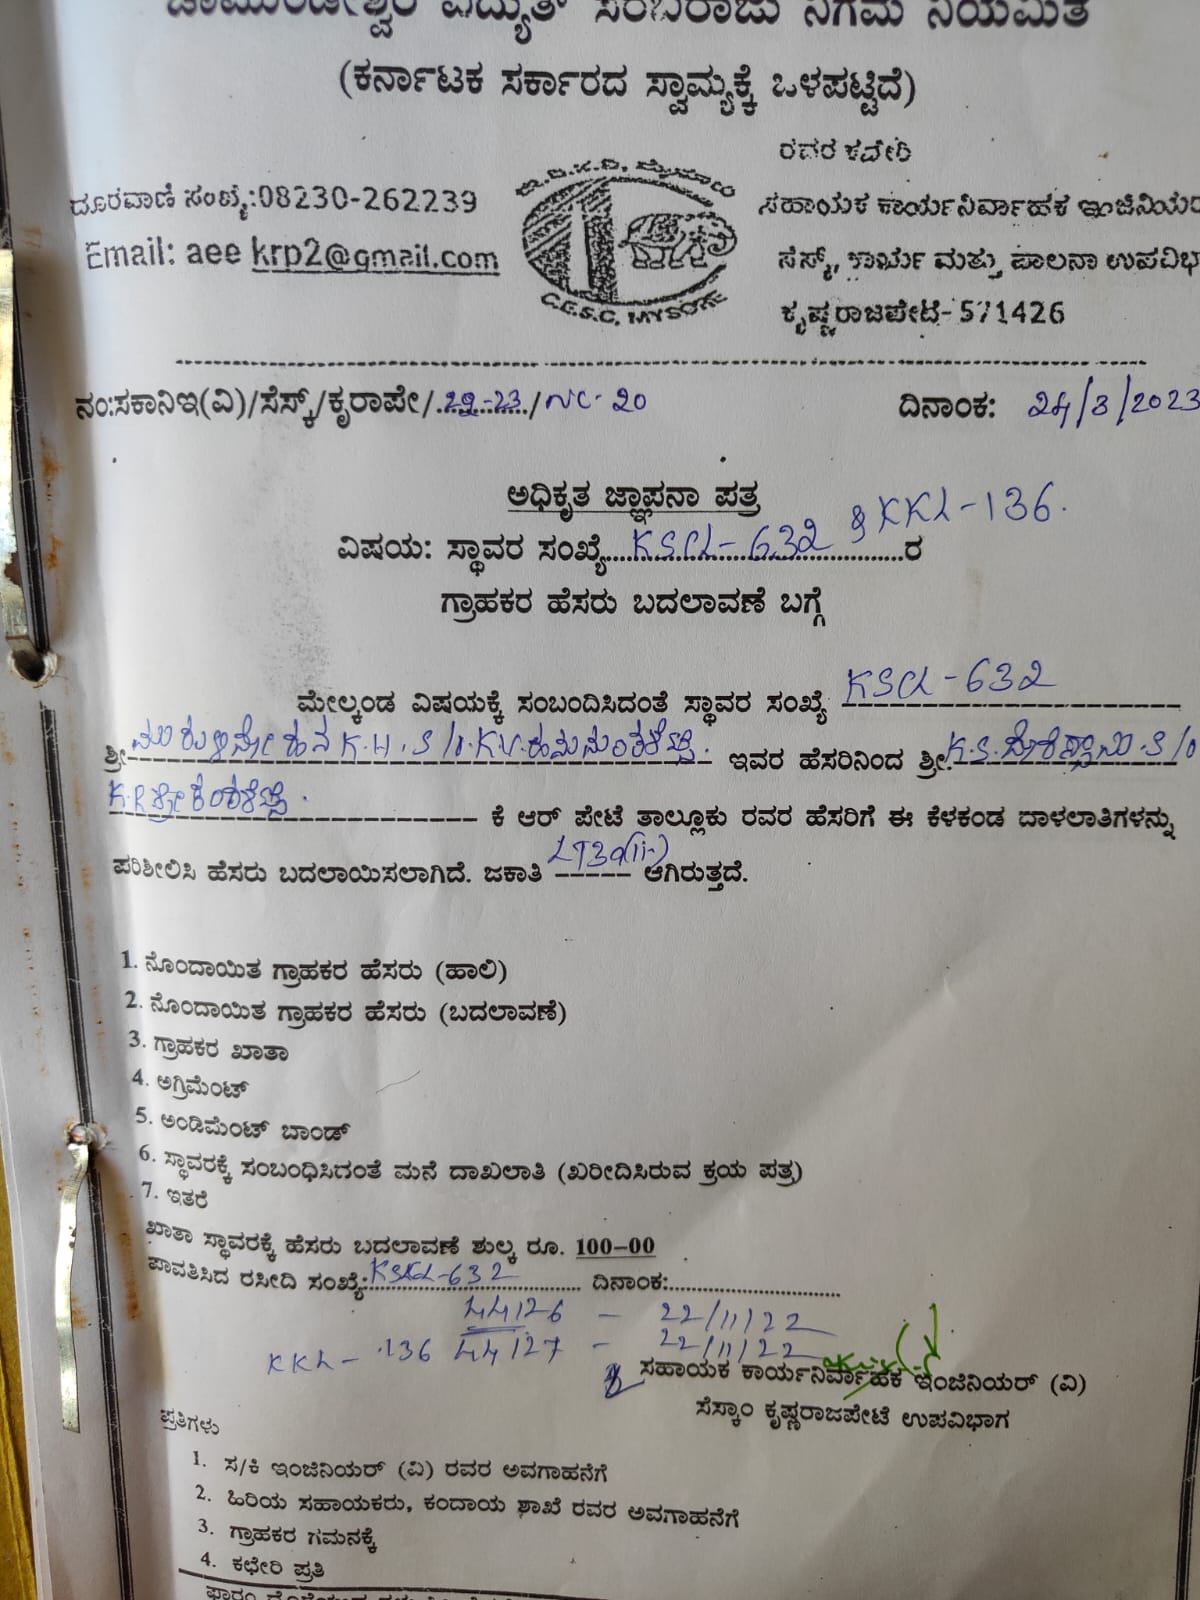 ಚಾಮುಂಡೇಶ್ವರಿ ವಿದ್ಯುತ್ ಸರಬರಾಜು ನಿಗಮ ನಿಯಮಿತ
(ಕರ್ನಾಟಕ ಸರ್ಕಾರದ ಸ್ವಾಮ್ಯಕ್ಕೆ ಒಳಪಟ್ಟಿದೆ)
ರವರ ಕಛೇರಿ
ದೂರವಾಣಿ ಸಂಖ್ಯೆ:08230-262239
ಸಹಾಯಕ ಕಾರ್ಯನಿರ್ವಾಹಕ ಇಂಜಿನಿಯರ
Email: aee krp2@gmail.com
ಸೆಸ್ಕ್, ಕಾರ್ಯ ಮತ್ತು ಪಾಲನಾ ಉಪವಿಭಾ
C.E.S.C, MYSORE
ಕೃಷ್ಣರಾಜಪೇಟೆ-571426
ನಂ:ಸಕಾನಿಇ(ವಿ)/ಸೆಸ್ಕ್/ಕೃರಾಪೇ/22-23/NC-20 ದಿನಾಂಕ: 24/3/2023
ಅಧಿಕೃತ ಜ್ಞಾಪನಾ ಪತ್ರ
ವಿಷಯ: ಸ್ಥಾವರ ಸಂಖ್ಯೆ....KSCL-632 & KKL-136.....ರ
ಗ್ರಾಹಕರ ಹೆಸರು ಬದಲಾವಣೆ ಬಗ್ಗೆ
ಮೇಲ್ಕಂಡ ವಿಷಯಕ್ಕೆ ಸಂಬಂದಿಸಿದಂತೆ ಸ್ಥಾವರ ಸಂಖ್ಯೆ KSCL-632
ಶ್ರೀ K.H. S/o. K.V. ಇವರ ಹೆಸರಿನಿಂದ ಶ್ರೀ. K.S. S/o
K.R ಕೆ ಆರ್ ಪೇಟೆ ತಾಲ್ಲೂಕು ರವರ ಹೆಸರಿಗೆ ಈ ಕೆಳಕಂಡ ದಾಳಲಾತಿಗಳನ್ನು
ಪರಿಶೀಲಿಸಿ ಹೆಸರು ಬದಲಾಯಿಸಲಾಗಿದೆ. ಜಕಾತಿ LT3a(ii) ಆಗಿರುತ್ತದೆ.
1. ನೊಂದಾಯಿತ ಗ್ರಾಹಕರ ಹೆಸರು (ಹಾಲಿ)
2. ನೊಂದಾಯಿತ ಗ್ರಾಹಕರ ಹೆಸರು (ಬದಲಾವಣೆ)
3. ಗ್ರಾಹಕರ ಖಾತಾ
4. ಅಗ್ರಿಮೆಂಟ್
5. ಅಂಡಿಮೆಂಟ್ ಬಾಂಡ್
6. ಸ್ಥಾವರಕ್ಕೆ ಸಂಬಂಧಿಸಿದಂತೆ ಮನೆ ದಾಖಲಾತಿ (ಖರೀದಿಸಿರುವ ಕ್ರಯ ಪತ್ರ)
7. ಇತರೆ
ಖಾತಾ ಸ್ಥಾವರಕ್ಕೆ ಹೆಸರು ಬದಲಾವಣೆ ಶುಲ್ಕ ರೂ. 100-00
ಪಾವತಿಸಿದ ರಸೀದಿ ಸಂಖ್ಯೆ:KSCL-632.......... ದಿನಾಂಕ:..............................
44126 - 22/11/22
KKL-136 44127 - 22/11/22
ಸಹಾಯಕ ಕಾರ್ಯನಿರ್ವಾಹಕ ಇಂಜಿನಿಯರ್ (ವಿ)
ಸೆಸ್ಕಾಂ ಕೃಷ್ಣರಾಜಪೇಟೆ ಉಪವಿಭಾಗ
ಪ್ರತಿಗಳು
1. ಸ/ಕಿ ಇಂಜಿನಿಯರ್ (ವಿ) ರವರ ಅವಗಾಹನೆಗೆ
2. ಹಿರಿಯ ಸಹಾಯಕರು, ಕಂದಾಯ ಶಾಖೆ ರವರ ಅವಗಾಹನೆಗೆ
3. ಗ್ರಾಹಕರ ಗಮನಕ್ಕೆ
4. ಕಛೇರಿ ಪ್ರತಿ